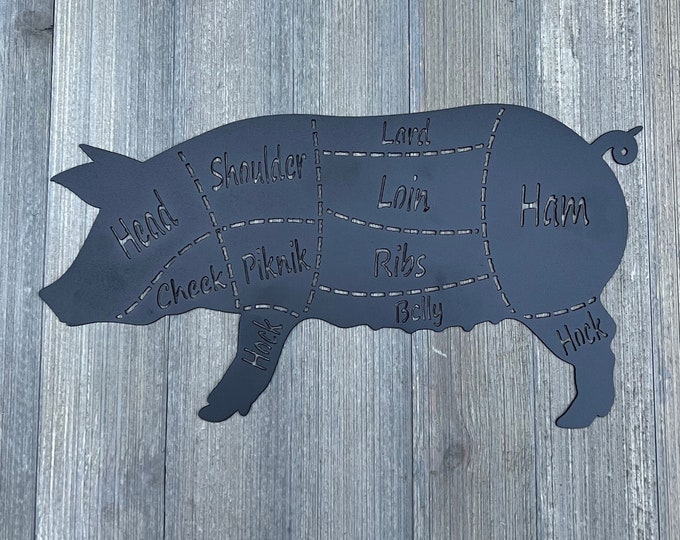 Lard
Shoulder
Loin
Ham
Head
Ribs
Piknik
Cheek
Belly
Hock
Hock